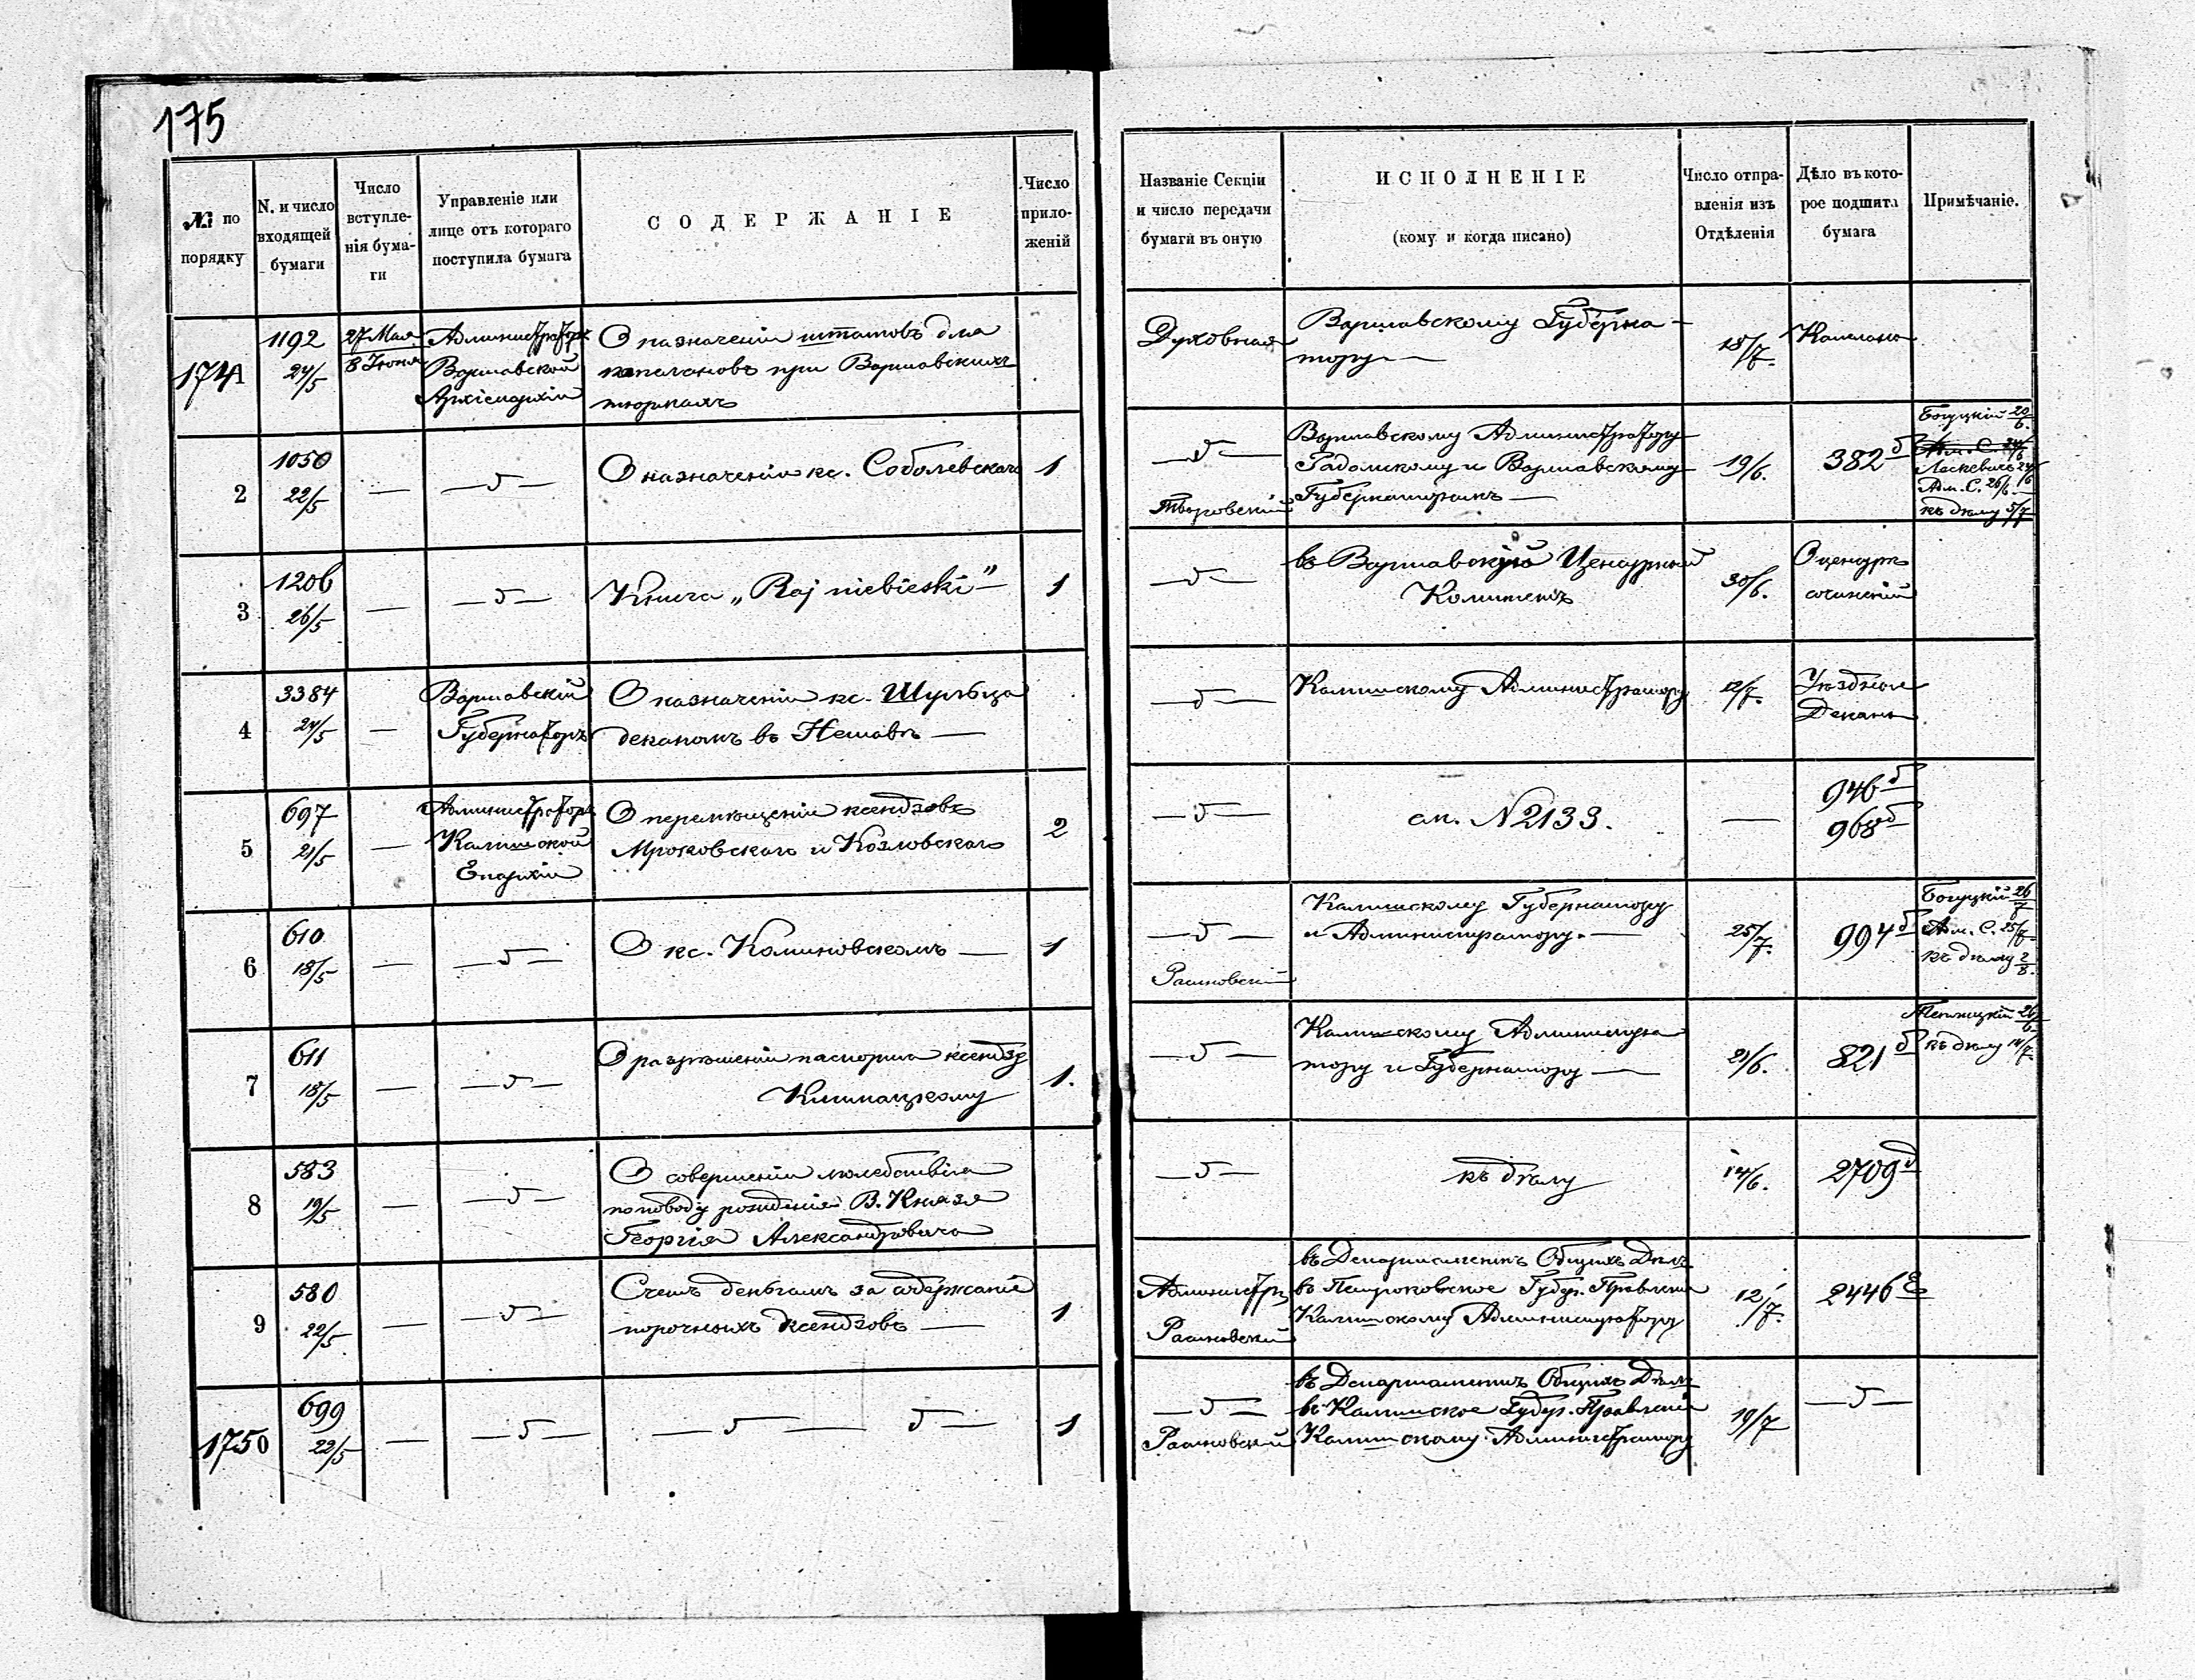 175
№ по порядку
N. и число входящей бумаги
Число вступле-нія бума-ги
Управленіе или лице отъ котораго поступила бумага
СОДЕРЖАНІЕ
Число прило-женій
Названіе Секціи и число передачи бумаги въ оную
ИСПОЛНЕНІЕ
(кому и когда писано)
Число отпра-вленія изъ Отдѣленія
Дѣло въ кото-рое подшита бумага
Примѣчаніе.
1741
1192
24/5
27 Мая
8 Іюня
Администраторъ
Варшавской
Архіепархіи
О назначеніи штатовъ для
капелановъ при Варшавскихъ
тюрмахъ
Духовная
Варшавскому Губерна-
тору
18/7.
Капеланы
2
1050
22/5
—
—"—
О назначеніи кс. Соболевскаго
1
—"—
Варшавскому Администратору
Радомскому и Варшавскому
Губернаторамъ —
19/6.
382 б
Богуцкій 20/6.
Адм. С. 24/6
Адм. С. 26/6
къ дѣлу 5/7
3
1206
26/5
—
—"—
Книга „Raj niebieski" —
1
—"—
въ Варшавскій Ценсурный
Комитетъ
30/6.
О ценсурѣ
сочиненій
4
3384
24/5
—
Варшавскій
Губернаторъ
О назначеніи кс. Шульца
деканомъ въ Нешавѣ —
—"—
Калишскому Администратору
12/7.
Уѣздные
Деканы
5
697
21/5
—
Администраторъ
Калишской
Епархіи
О перемѣщеніи ксендзовъ
Мроковскаго и Козловскаго
2
—"—
сп. N 2133.
—
946 б
968 б
6
610
18/5
—
—"—
О кс. Калиновскомъ —
1
—"—
Рашовскій
Калишскому Губернатору
и Администратору. —
25/7.
994 б
Богуцкій 26/7
Адм. С. 25/7
къ дѣлу 2/8.
7
611
18/5
—
—"—
О разрѣшеніи паспорта ксендзу
Климацкому
1.
—"—
Калишскому Администра
тору и Губернатору —
21/6.
821 б
26/6
къ дѣлу 14/7.
8
583
19/5
—
—"—
О совершеніи молебствія
по поводу рожденія В. Князя
Георгія Александровича
—"—
къ дѣлу
14/6.
2709 д
9
580
22/5
—
—"—
Счетъ деньгамъ за содержаніе
порочныхъ ксендзовъ —
1
Администр.
Рашовскій
въ Департаментъ Общихъ Дѣлъ
въ Петроковское Губер. Правленіе
Калишскому Администратору
12/7.
2446 Е
1750
699
22/5
—
—"—
—"— "—
1
—"—
Рашовскій
въ Департаментъ Общихъ Дѣлъ
въ Калишское Губер. Правленіе
Калишскому Администратору
19/7
—"—